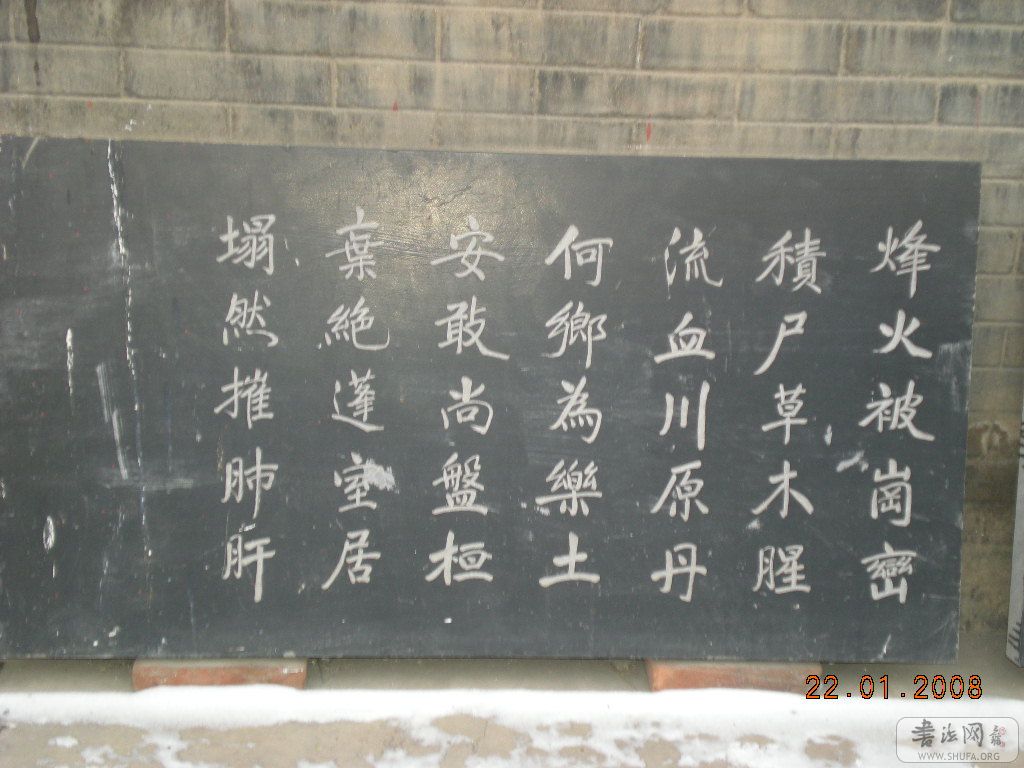 烽火被崗巒
積尸草木腥
流血川原丹
何鄉為樂土
安敢尚盤桓
葉絕蓬室居
塌然摧肺肝
22.01.2008
書法网
WWW.SHUFA.ORG